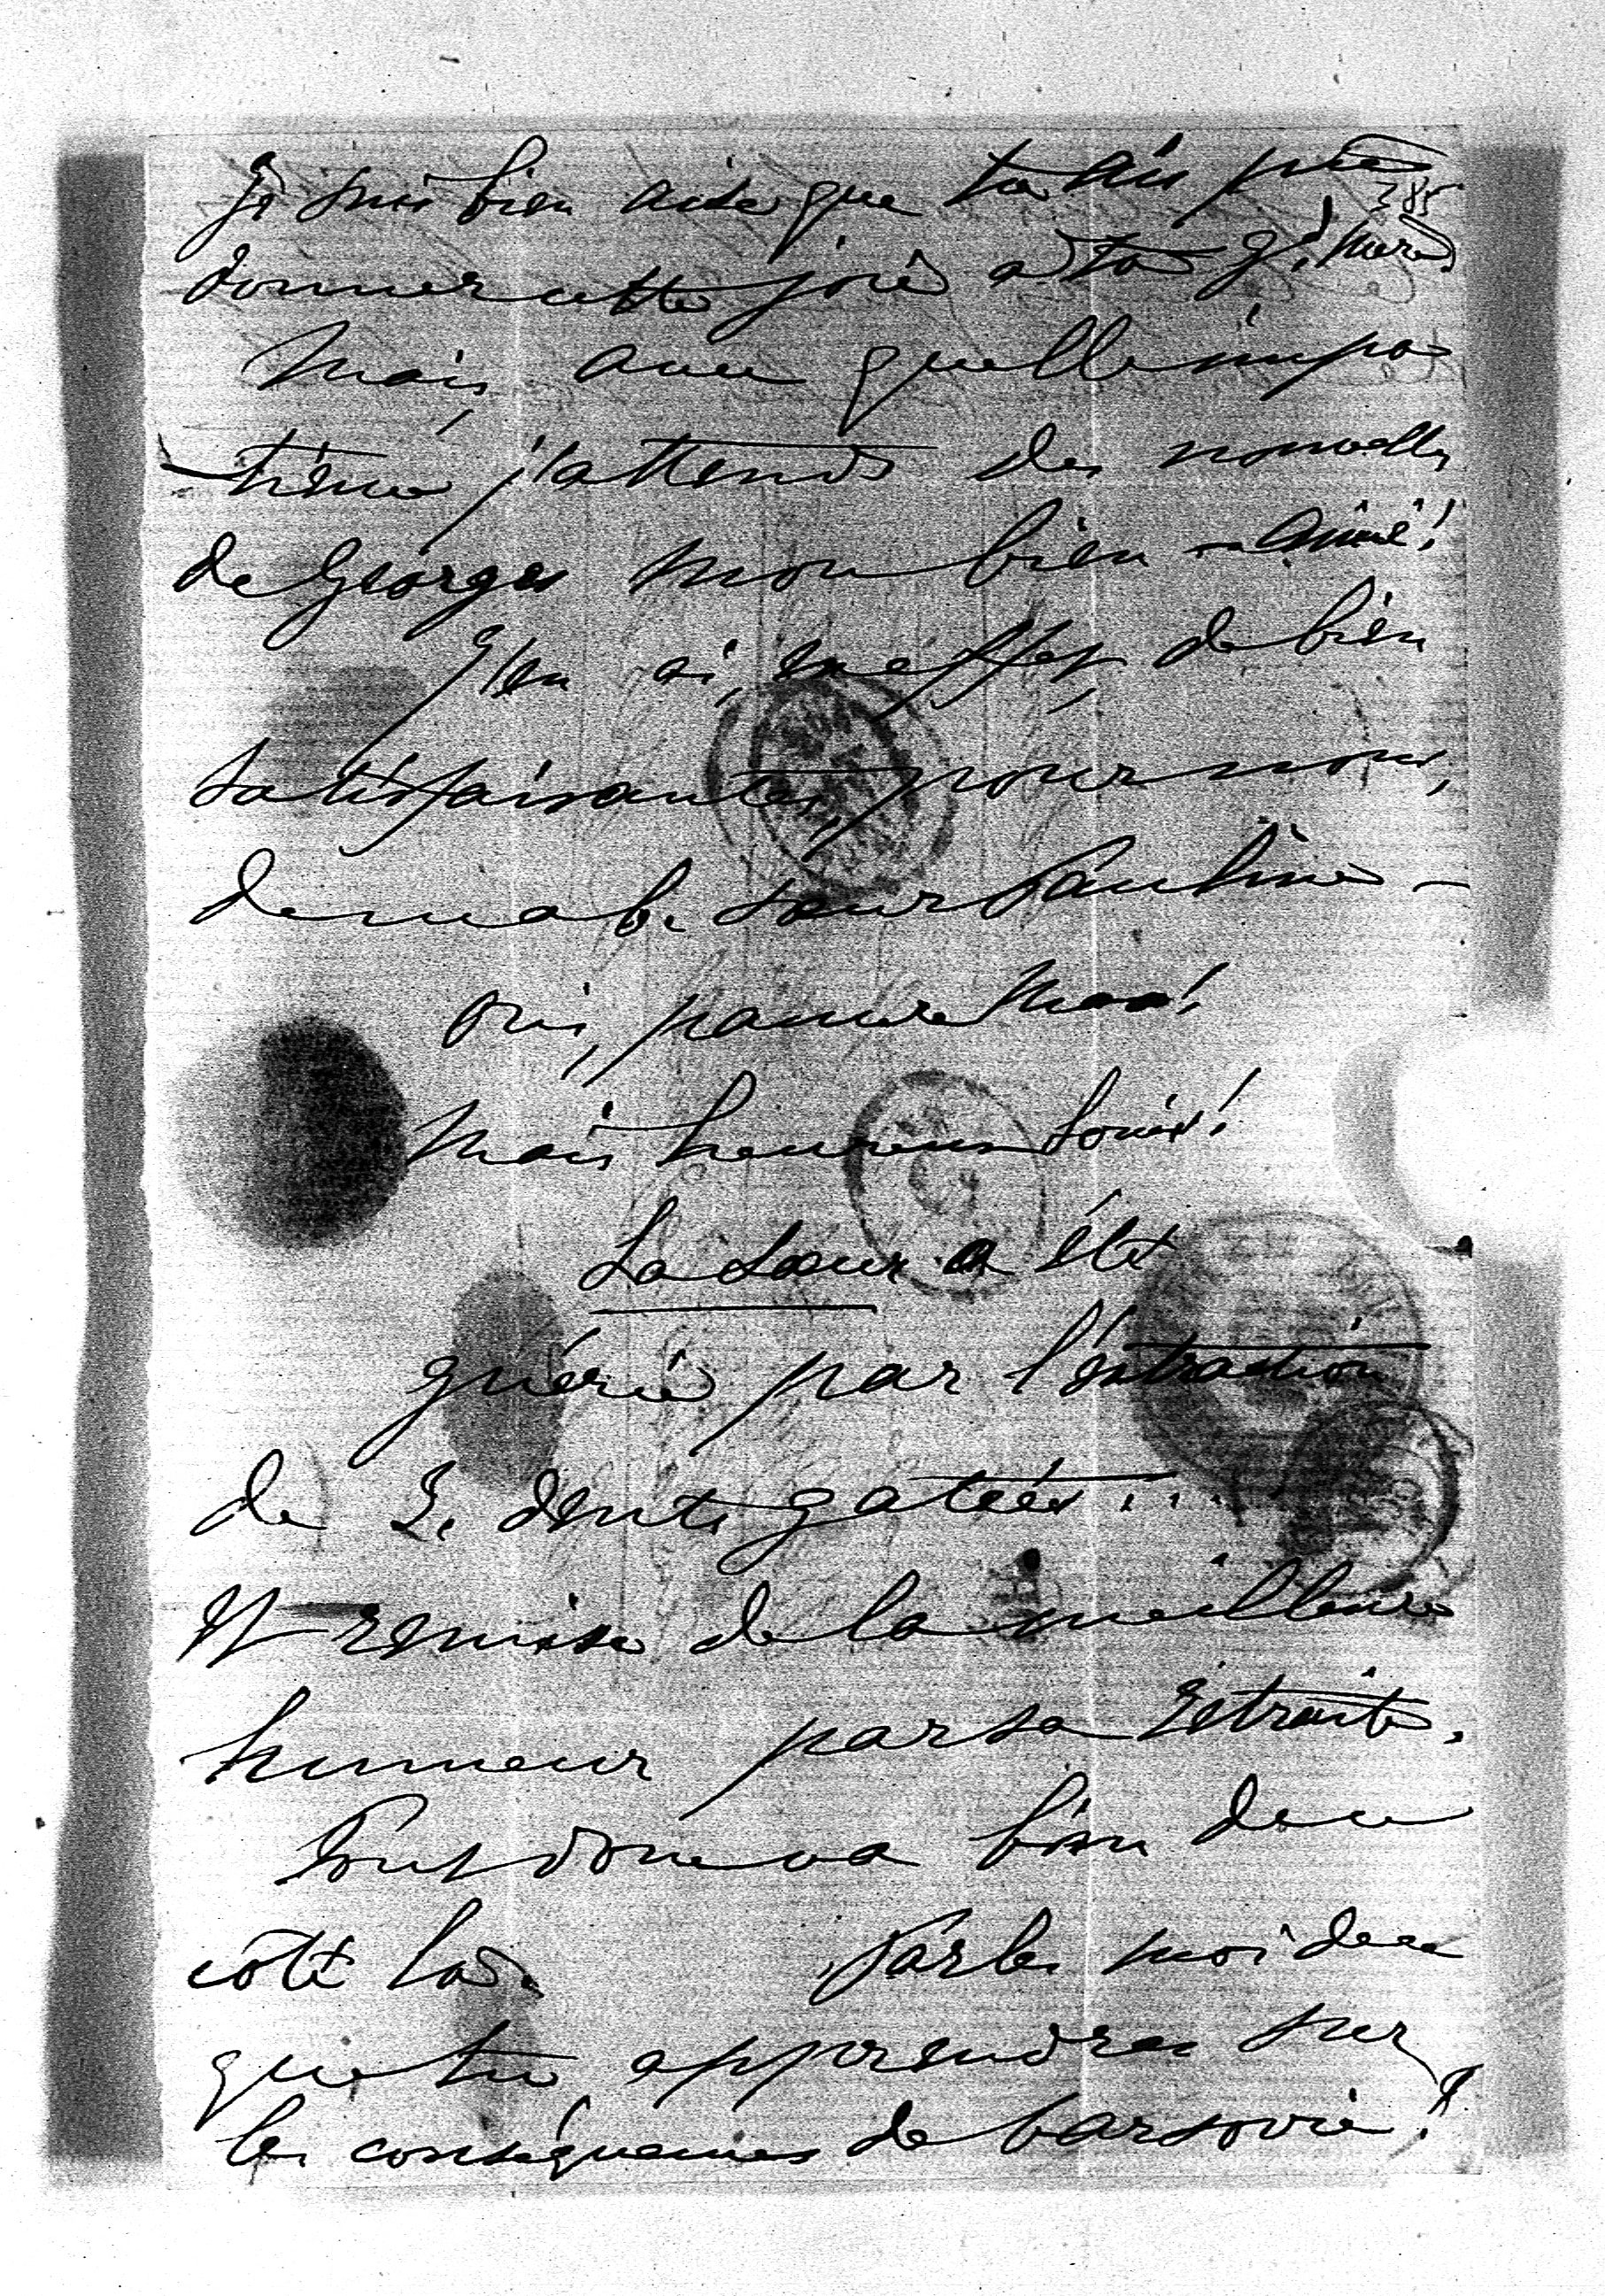 Je suis bien aise que tu aies pu
385
donner cette joie à ta gd mère.
Mais, avec quelle impa-
-tience j'attends des nouvelles
de Georges mon bien-aimé!
J'en ai, en effet, de bien
satisfaisantes, pour nous,
de ma b. soeur Pauline -
oui, pauvre Max!
Mais heureux Louis!
La soeur a été
guérie par l'extraction
de 2. dents gatées...
Et remise de la meilleure
humeur par sa retraite.
Tout donc va bien de ce
côté là. Parles moi de ce
que tu apprendras sur
les conséquences de Varsovie!